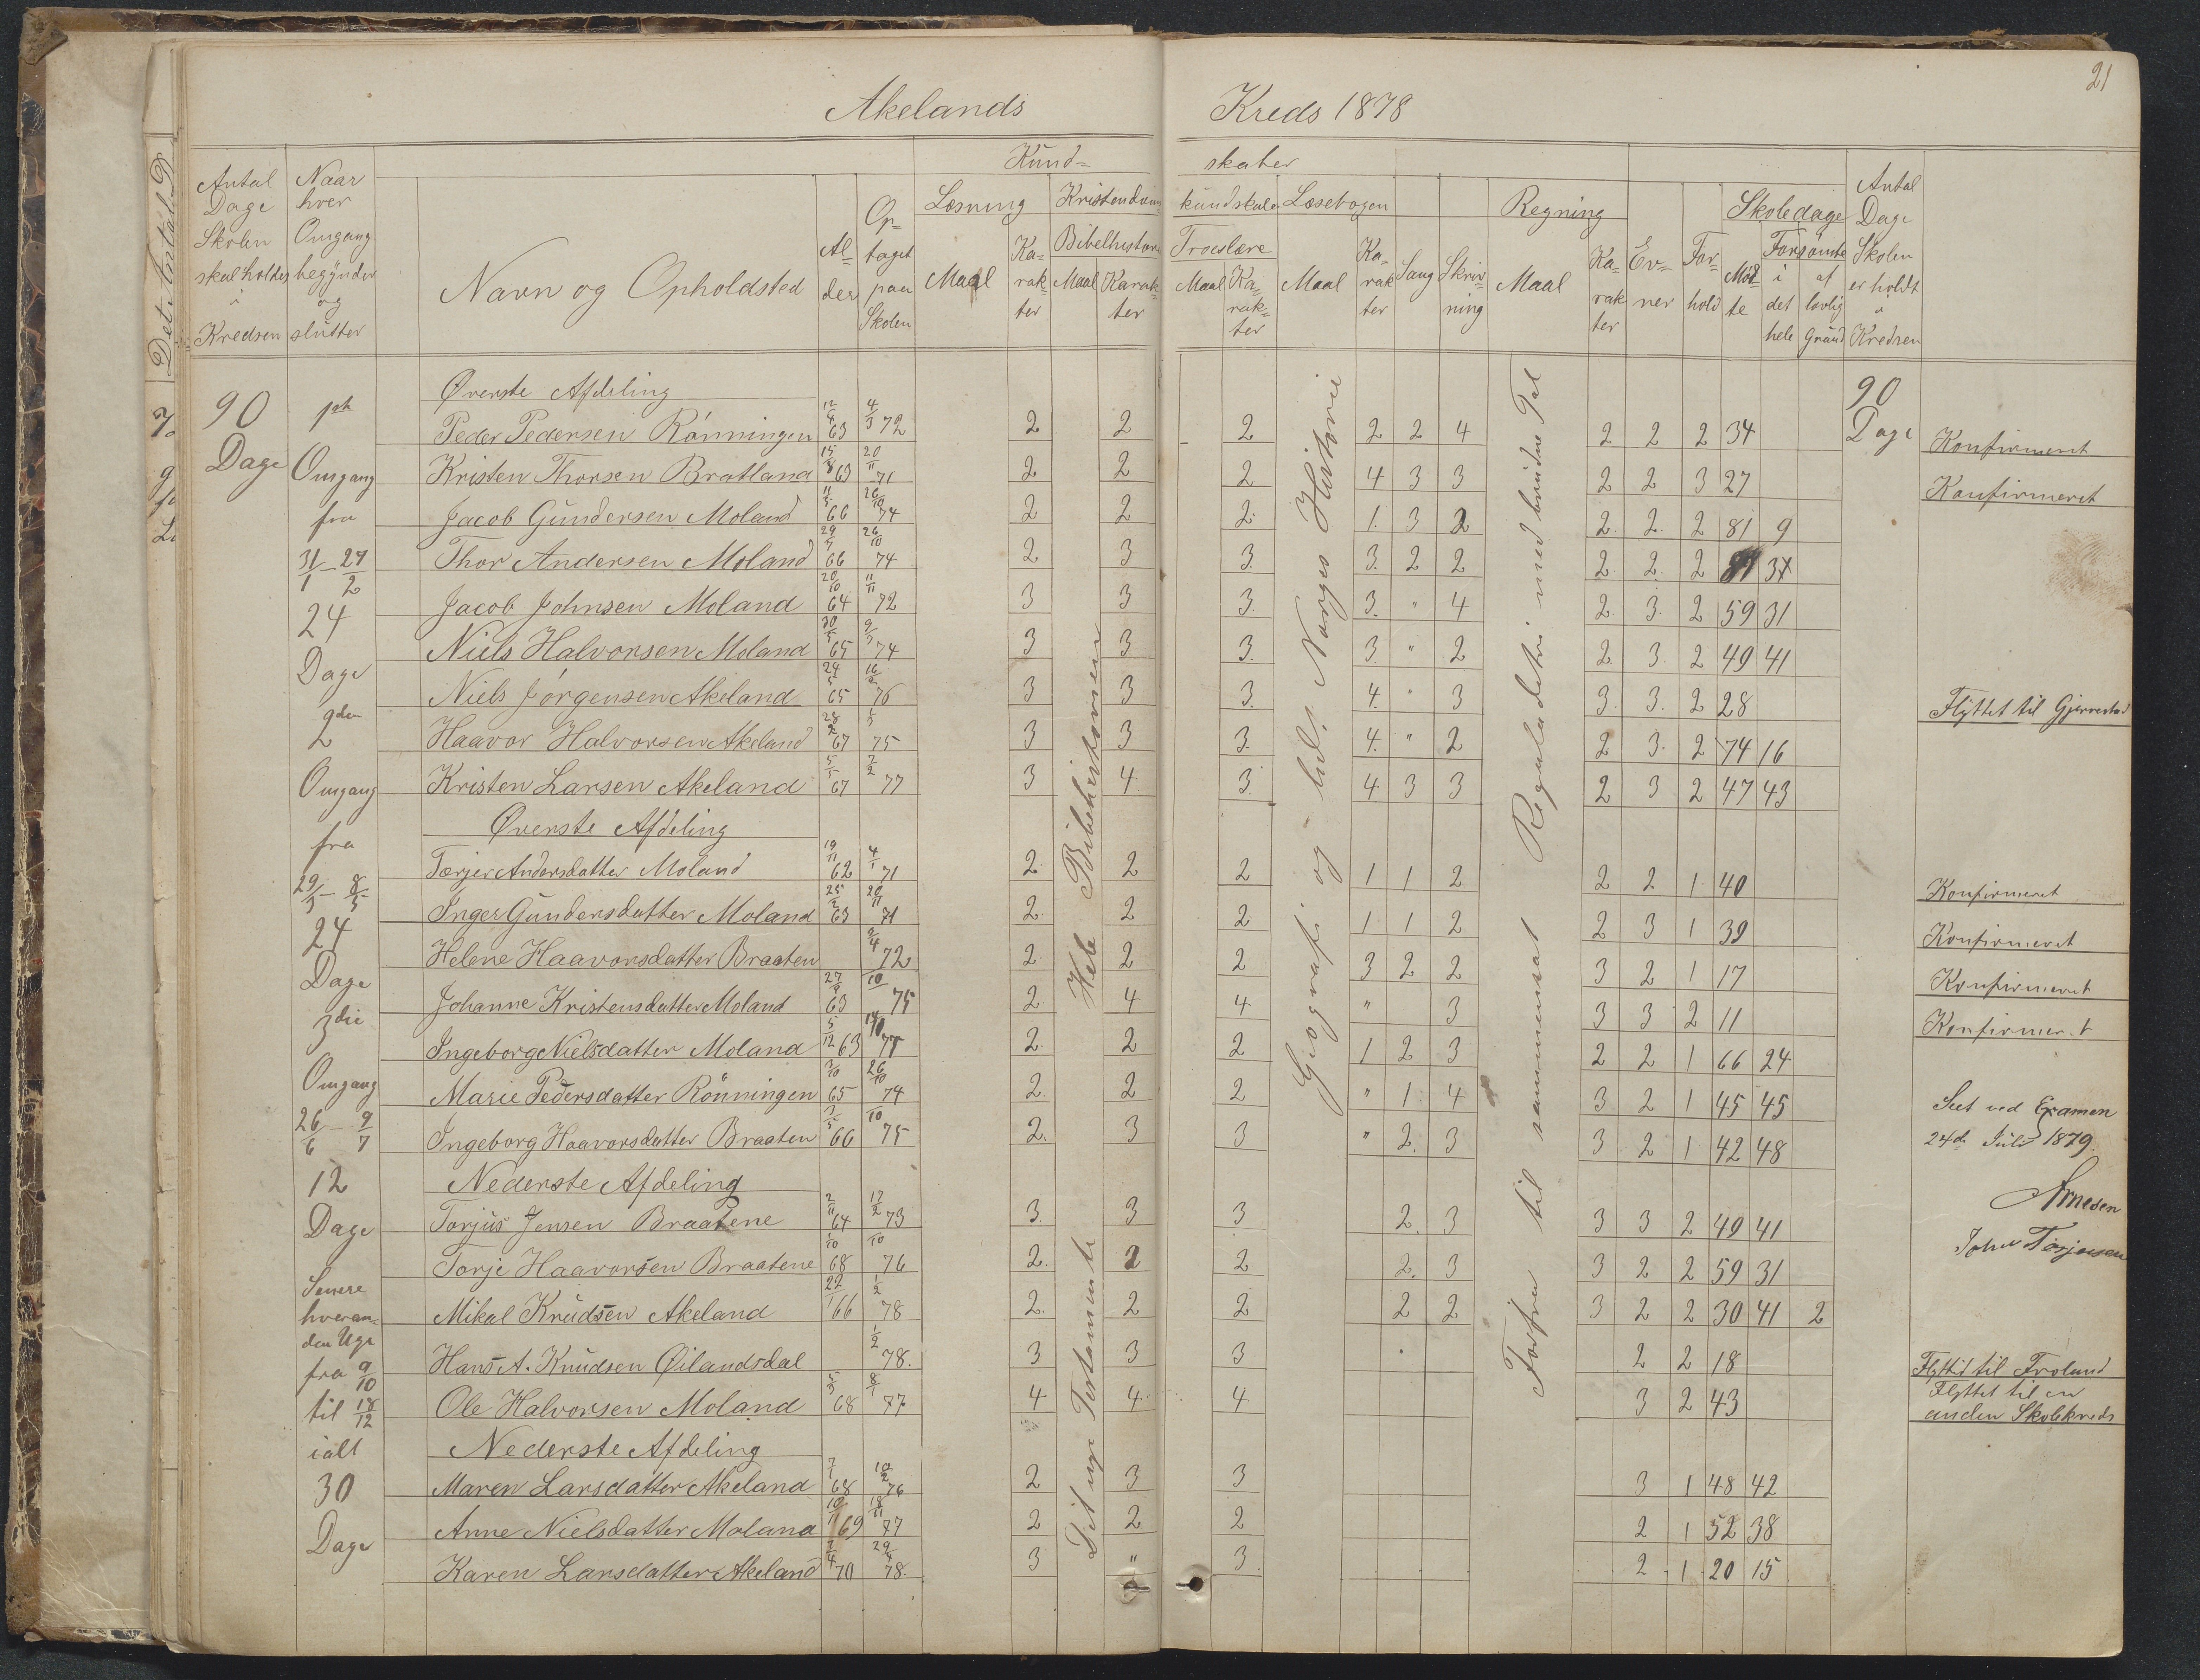 Akelands Kreds 1878
21
Antal Dage Skolen skal holdes i Kredsen
Naar hver Omgang begynder og slutter
Navn og Opholdsted
Alder
Optaget paa Skolen
Kundskaber
Læsning
Maal
Karakter
Kristendomskundskab
Bibelhistorie
Maal
Karakter
Troeslære
Maal
Karakter
Læsebogen
Maal
Karakter
Sang
Skrivning
Regning
Maal
Karakter
Evner
Forhold
Skoledage
Mødte
Forsømte
i det hele
af lovlig Grund
Antal Dage Skolen er holdt i Kredsen
90 Dage
1ste Omgang fra 31/1 – 27/2 24 Dage
2den Omgang fra 29/3 – 8/5 24 Dage
3die Omgang 26/6 – 9/7 12 Dage
Senere hveranden Uge fra 9/10 til 18/12 ialt 30 Dage
Det nye Testamente Hele Bibelhistorien
Geografi og Norges Historie
Forfra til sammensat Reguladetri med brudne Tal
90 Dage
Øverste Afdeling
Peder Pedersen Rönningen 12/9 63 4/3 72 2 2 2 2 2 4 2 2 2 34 Konfirmeret
Kristen Thorsen Bratland 15/8 63 20/11 71 2 2 2 4 3 3 2 2 3 27 Konfirmeret
Jacob Gundersen Moland 11/5 66 26/10 74 2 2 2 1 3 2 2 2 2 81 9
Thor Andersen Moland 66 26/10 74 2 3 3 3 2 2 2 2 2
Jacob Johnsen Moland 20/10 64 11/11 72 3 3 3 3 " 4 2 3 2 59 31
Niels Halvorsen Moland 65 74 3 3 3 3 " 2 2 3 2 49 41
Niels Jörgensen Akeland 24/5 65 76 3 3 3 4 " 3 3 3 2 28 Flyttet til Gjerrestad
Haavor Halvorsen Akeland 67 75 3 3 3 4 " 2 2 3 2 74 16
Kristen Larsen Akeland 67 77 3 4 3 4 3 3 2 3 2 47 43
Øverste Afdeling
Torjer Andersdatter Moland 19/11 62 4/1 71 2 2 2 1 1 2 2 2 1 40 Konfirmeret
Inger Gundersdatter Moland 63 20/11 71 2 2 2 1 1 2 2 3 1 39 Konfirmeret
Helene Haavorsdatter Braaten 72 2 2 2 3 2 2 3 2 1 17 Konfirmeret
Johanne Kristensdatter Moland 63 10 75 2 4 4 " 3 3 3 2 11 Konfirmeret
Ingeborg Nielsdatter Moland 5/12 63 2 2 2 1 2 3 2 2 1 66 24
Marie Pedersdatter Rönningen 65 26/10 74 2 2 2 " 1 4 3 2 1 45 45
Ingeborg Haavorsdatter Braaten 66 10 75 2 3 3 " 2 3 3 2 1 42 48
Seet ved Examen
24de Juli 1879.
Arnesen
John Torjousen
Nederste Afdeling
Torjus Jensen Braatene 2/11 64 17/2 73 3 3 3 2 3 3 3 2 49 41
Torje Haavorsen Braatene 1/10 68 10 76 2 2 2 2 3 3 2 2 59 31
Mikal Knudsen Akeland 22/1 66 1/2 78 2 2 2 2 2 3 2 2 30 41 2
Hans A. Knudsen Øilandsdal 1/2 78. 3 3 3 2 2 18 Flyttet til Froland
Ole Halvorsen Moland 68 8/1 77 4 4 4 3 2 43 Flyttet til en anden Skolekreds
Nederste Afdeling
Maren Larsdatter Akeland 68 76 2 3 3 3 1 48 42
Anne Nielsdatter Moland 69 18/11 77 2 2 2 2 1 52 38
Karen Larsdatter Akeland 70 78. 3 " 3 2 1 20 15